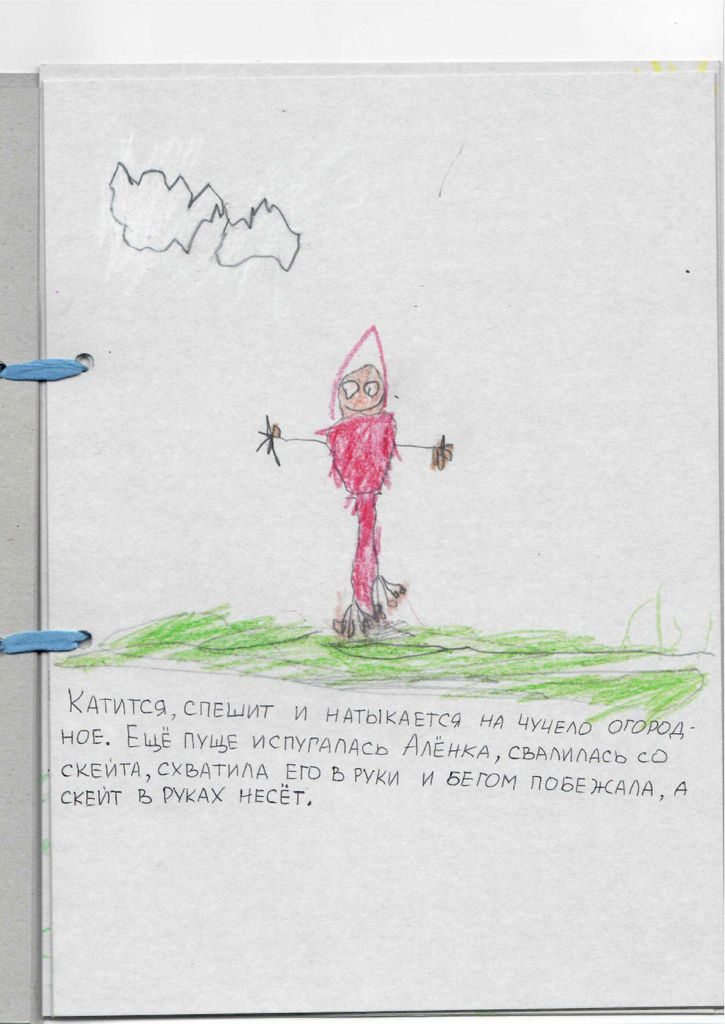 Катится, спешит и натыкается на чучело огород-
ное. Ещё пуще испугалась Алёнка, свалилась со
скейта, схватила его в руки и бегом побежала, а
скейт в руках несёт.